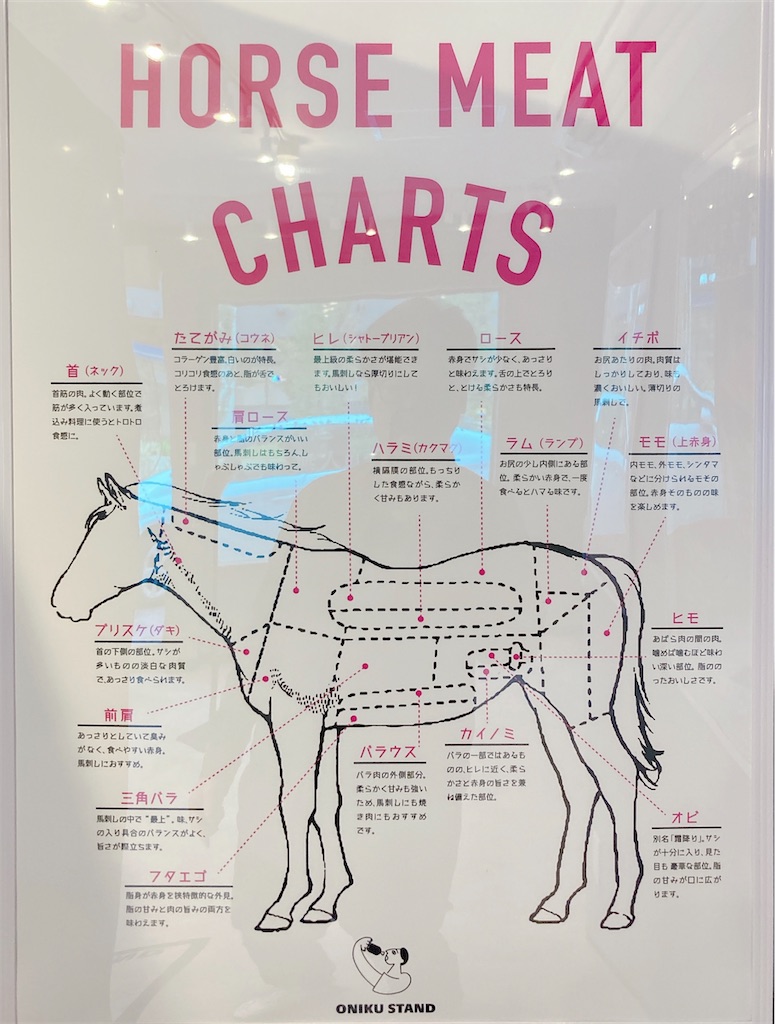 HORSE MEAT
CHARTS
首(ネック)
首筋の肉。よく動く部位で
筋が多く入っています。煮
込み料理に使うとトロトロ
食感に。
たてがみ(コウネ)
コラーゲン豊富、白いのが特長。
コリコリ食感のあと、脂が舌で
とろけます。
ヒレ(シャトーブリアン)
最上級の柔らかさが堪能でき
ます。馬刺しなら厚切りにして
もおいしい!
ロース
赤身でサシが少なく、あっさり
と味わえます。舌の上でとろり
と、とける柔らかさも特長。
イチボ
お尻あたりの肉。肉質は
しっかりしており、味も
濃くおいしい。薄切りの
馬刺しで。
肩ロース
赤身と脂のバランスがいい
部位。馬刺しはもちろん、し
ゃぶしゃぶでも味わって。
ハラミ(カクマク)
横隔膜の部位。もっちり
した食感ながら、柔らか
く甘みもあります。
ラム(ランプ)
お尻の少し内側にある部
位。柔らかい赤身で、一度
食べるとハマる味です。
モモ(上赤身)
内モモ、外モモ、シンタマ
などに分けられるモモの
部位。赤身そのものの味
を楽しめます。
ブリスケ(ダキ)
首の下側の部位。サシが
多いものの淡白な肉質
で、あっさり食べられます。
ヒモ
あばら肉の間の肉。
噛めば噛むほど味わ
い深い部位。脂のの
ったおいしさです。
前肩
あっさりとしていて臭み
がなく、食べやすい赤身。
馬刺しにおすすめ。
バラウス
バラ肉の外側部分。
柔らかく甘みも強い
ため、馬刺しにも焼
き肉にもおすすめ
です。
カイノミ
バラの一部ではあるも
のの、ヒレに近く、柔ら
かさと赤身の旨さを兼
ね備えた部位。
三角バラ
馬刺しの中で"最上"。味、サシ
の入り具合のバランスがよく、
旨さが際立ちます。
オビ
別名「霜降り」。サシ
が十分に入り、見た
目も豪華な部位。脂
の甘みが口に広が
ります。
フタエゴ
脂身が赤身を挟む特徴的な外見。
脂の甘みと肉の旨みの両方を
味わえます。
ONIKU STAND